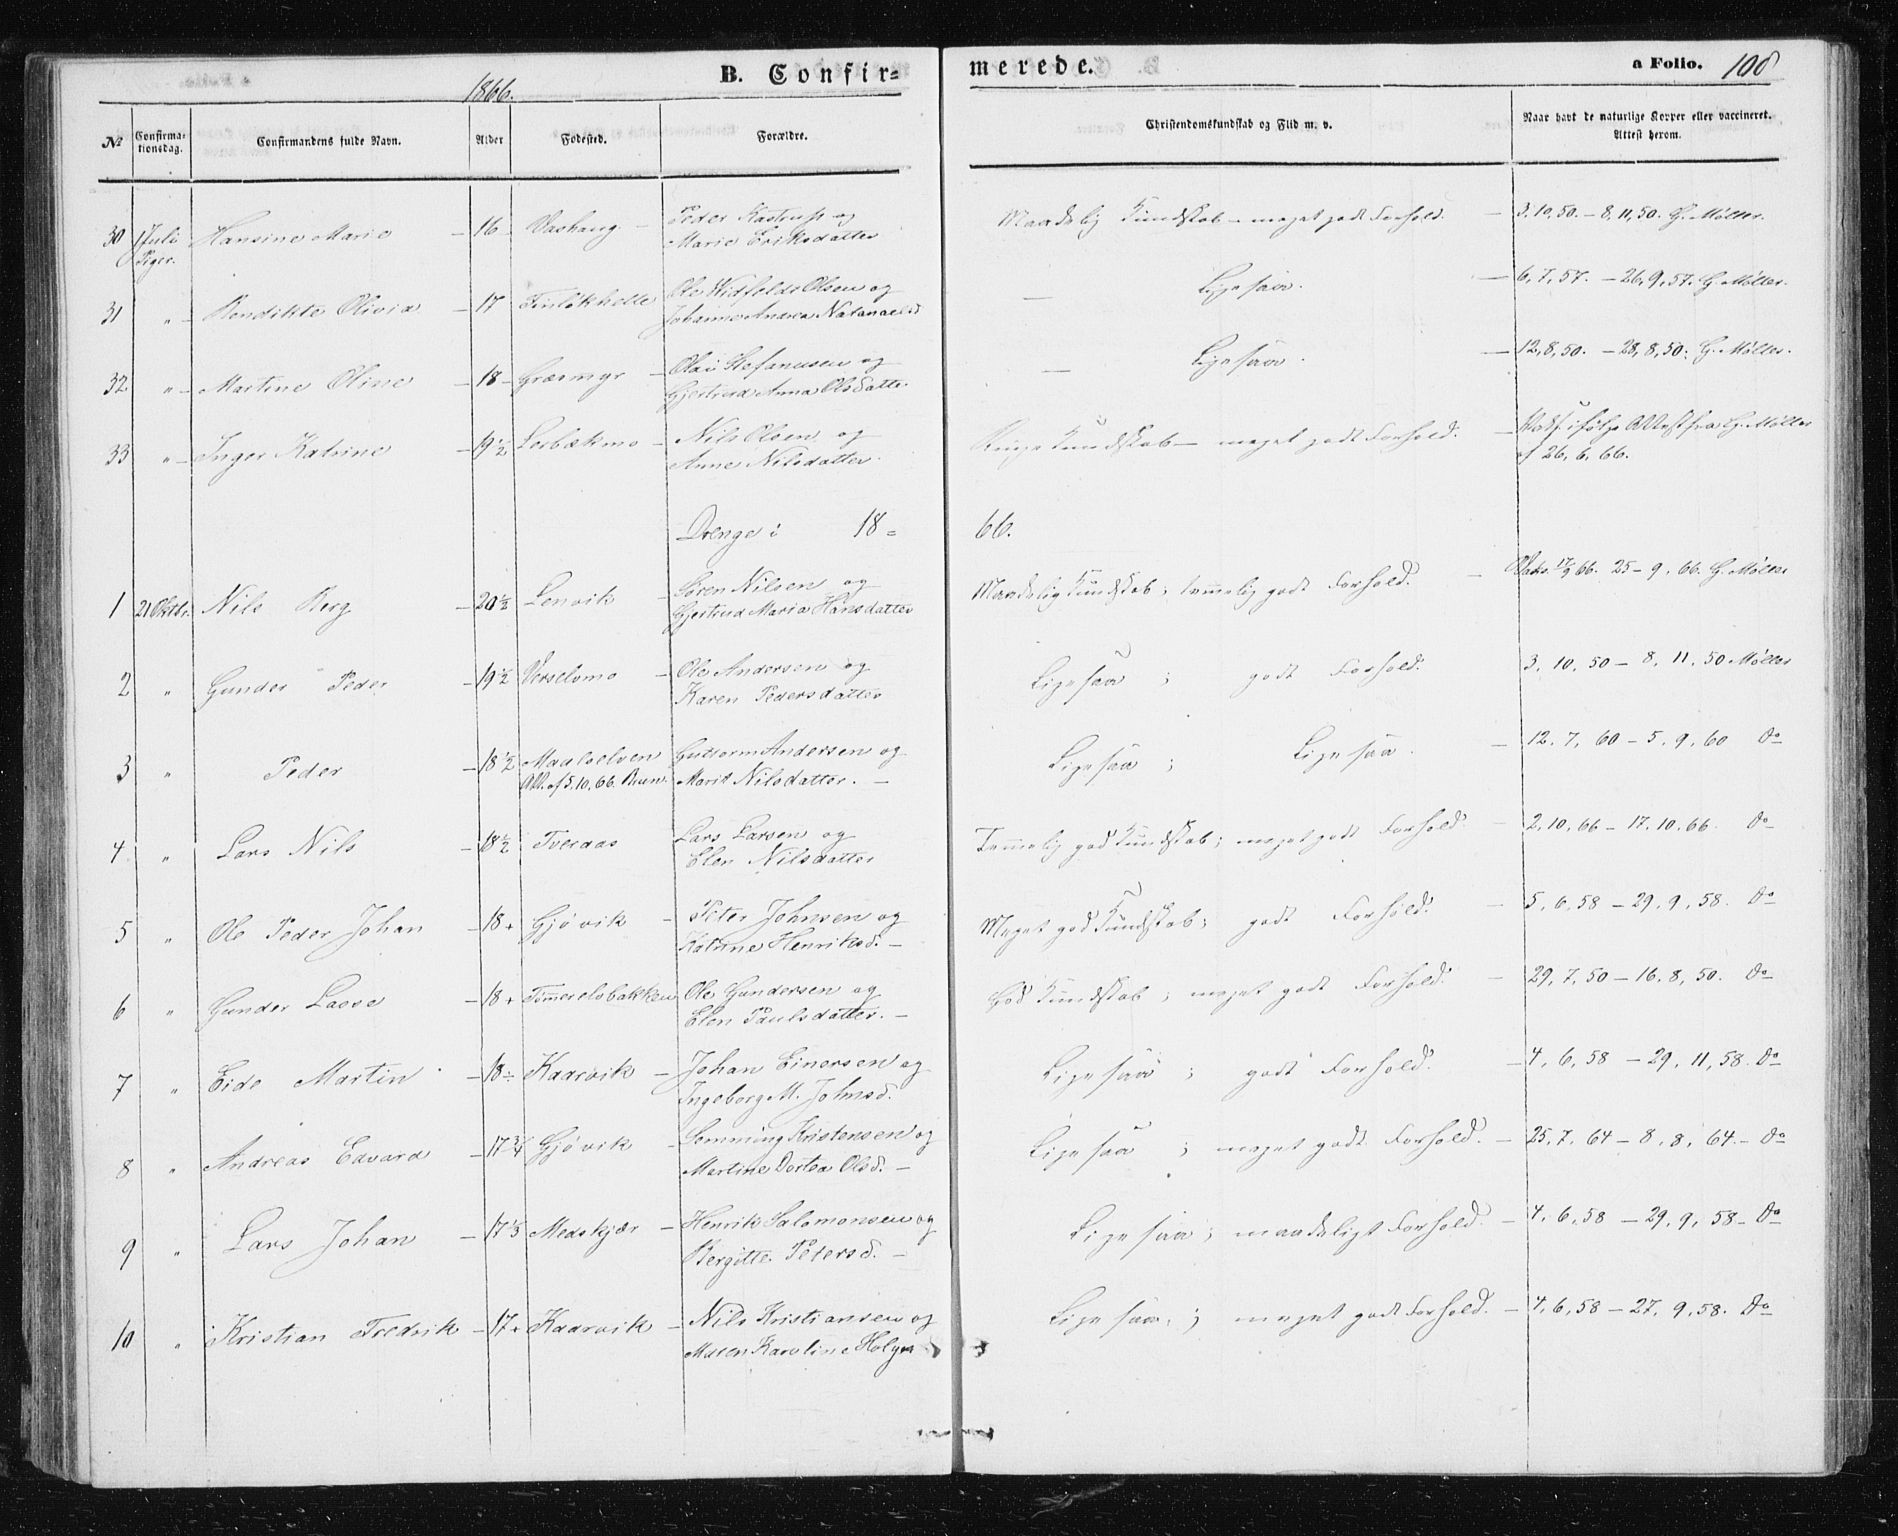 B. Confir=
merede.
a Folio. 108
1866.
№
Confirma=
tionsdag.
Confirmandens fulde Navn.
Alder
Fødested.
Forældre.
Christendomskundskab og Flid m. v.
Naar havt de naturlige Kopper eller vaccineret.
Attest herom.
30 1 Juli Hansine Marie - 16 - Vashaug - Peder Kastrup og Maadelig Kundskab - meget godt Forhold. - 3.10.50. - 8.11.50. G. Møller.
Piger. Marie Eriksdatter
31 " - Bendikte Olivia - 17 Ole Olsen og - Ligesaa. - 6.7.57. - 26.9.57. G. Møller.
Johanne Andrea Natanaelsd
32 " - Martine Oline - 18 - Græsmyr - Olai Stefanusen og - Ligesaa. - 12.8.50. - 28.8.50. G. Møller.
Gjertrud Anna Olsdatter
33 " - Inger Katrine - 19½ Lerbækmo - Nils Olsen og Ringe Kundskab - meget godt Forhold. - Vaks. ifølge Attest fra G. Møller
Anne Nilsdatter. af 26.6.66.
Drenge i 18 = 66.
1 21 Oktbr. Nils Berg - 20½ Lenvik - Søren Nilsen og Maadelig Kundskab; temmelig godt Forhold. - Vaks. 17/9 66. 25 - 9.66. G. Møller
Gjertrud Maria Hansdatter
2 " Gunder Peder - 19½ Verselvmo - Ole Andersen og Ligesaa ; godt Forhold. 3.10.50 - 8.11.50 Møller
Karen Pedersdatter
3 " Peder - 18½ Maalselven Guttorm Andersen og Ligesaa ; Ligesaa. - 12.7.60 - 5.9.60 Do
Att. af 5.10.66. Bruun. Marit Nilsdatter. -
4 " Lars Nils - 18½ Tveraas Lars Larsen og Temmelig god Kundskab; meget godt Forhold. - 2.10.66 - 17.10.66. Do
Elen Nilsdatter
5 " Ole Peder Johan - 18 + Gjøvik - Peter Johnsen og Meget god Kundskab; godt Forhold. - 5.6.58 - 29.9.58. Do
Katrine Henriksd. -
6 " Gunder Lasse - 18 + Timmerelvbakken Ole Gundersen og God Kundskab ; meget godt Forhold. - 29.7.50 - 16.8.50. Do
Elen Paulsdatter. -
7 " Eide Martin - 18 ÷ Kaarvik - Johan Einersen og Ligesaa ; godt Forhold. - 4.6.58 - 29.11.58. Do
Ingeborg M. Johnsd.
8 " Andreas Edvard - 17¾ Gjøvik - Lemming Kristensen og Ligesaa ; meget godt Forhold. - 25.7.64 - 8.8.64. - Do
Martine Dortea Olsd. -
9 " Lars Johan - 17⅓ Medskjær - Henrik Salomonsen og Ligesaa; maadeligt Forhold. - 4.6.58 - 29.9.58 - Do
Bergitte Petersd. -
10 " Kristian Fredrik - 17 + Kaarvik - Nils Kristiansen og Ligesaa. ; meget godt Forhold. - 4.6.58 - 27.9.58. Do
Maren Karoline